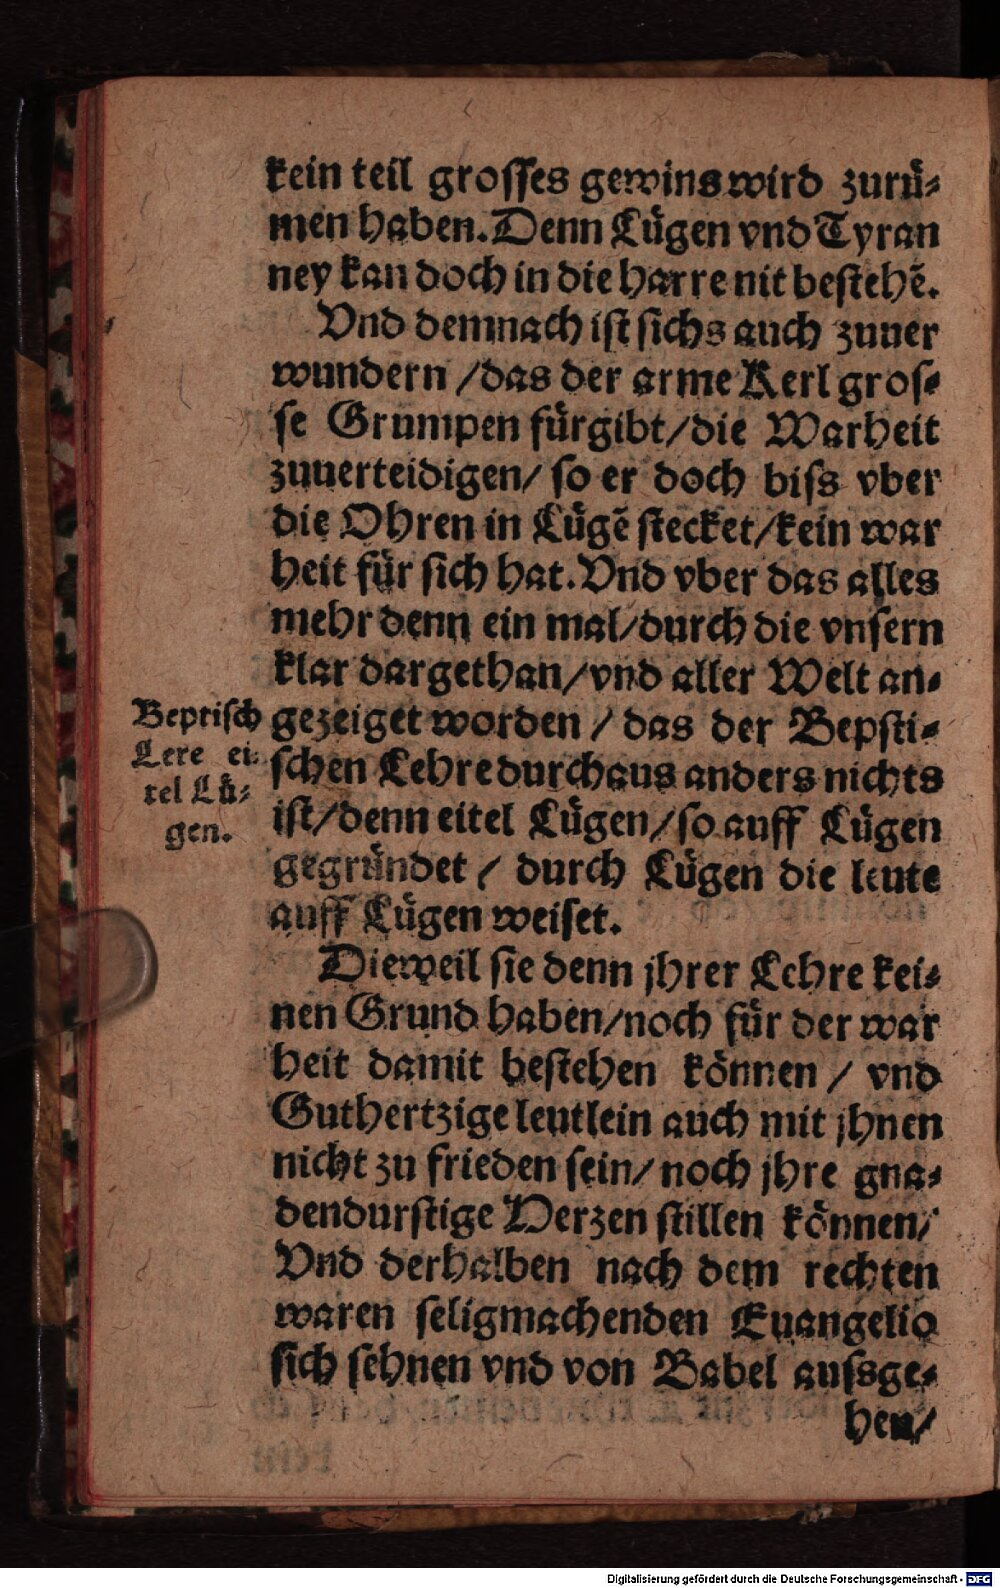 kein teil grosses gewins wird zurü⸗
men haben. Denn Lügen vnd Tyran
ney kan doch in die harre nit bestehẽ.
Vnd demnach ist sichs auch zuuer
wundern /das der arme Kerl gros⸗
se Grumpen fürgibt/die Warheit
zuuerteidigen/ so er doch biss vber
die Ohren in Lügẽ stecket/kein war
heit für sich hat. Vnd vber das alles
mehr denn ein mal/durch die vnsern
klar dargethan/vnd aller Welt an⸗
gezeiget worden / das der Bepsti⸗
schen Lehre durchaus anders nichts
ist/denn eitel Lügen/so auff Lügen
gegründet / durch Lügen die leute
auff Lügen weiset.
Bepstisch
Lere ei⸗
tel Lü⸗
gen.
Dieweil sie denn jhrer Lehre kei⸗
nen Grund haben/noch für der war
heit damit bestehen können / vnd
Guthertzige leutlein auch mit jhnen
nicht zu frieden sein/ noch jhre gna⸗
dendurstige Herzen stillen können/
Vnd derhalben nach dem rechten
waren seligmachenden Euangelio
sich sehnen vnd von Babel aussge⸗
hen/
Digitalisierung gefördert durch die Deutsche Forschungsgemeinschaft - DFG